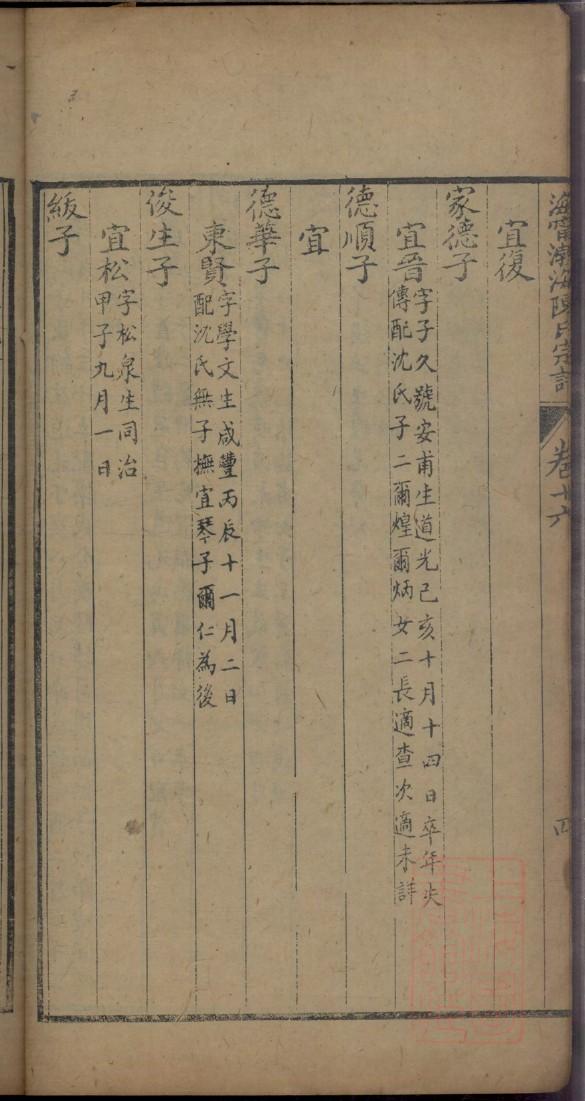 海寧渤海陳氏宗譜 卷十六 四
宜復
家德子
宜晉 字子久號安甫生道光己亥十月十四日卒年失
傳配沈氏子二爾煌爾炳女二長適查次適未詳
德順子
宜
德華子
東賢 字學文生咸豐丙辰十一月二日
配沈氏無子撫宜琴子爾仁為後
俊生子
宜松 字松泉生同治
甲子九月一日
紱子